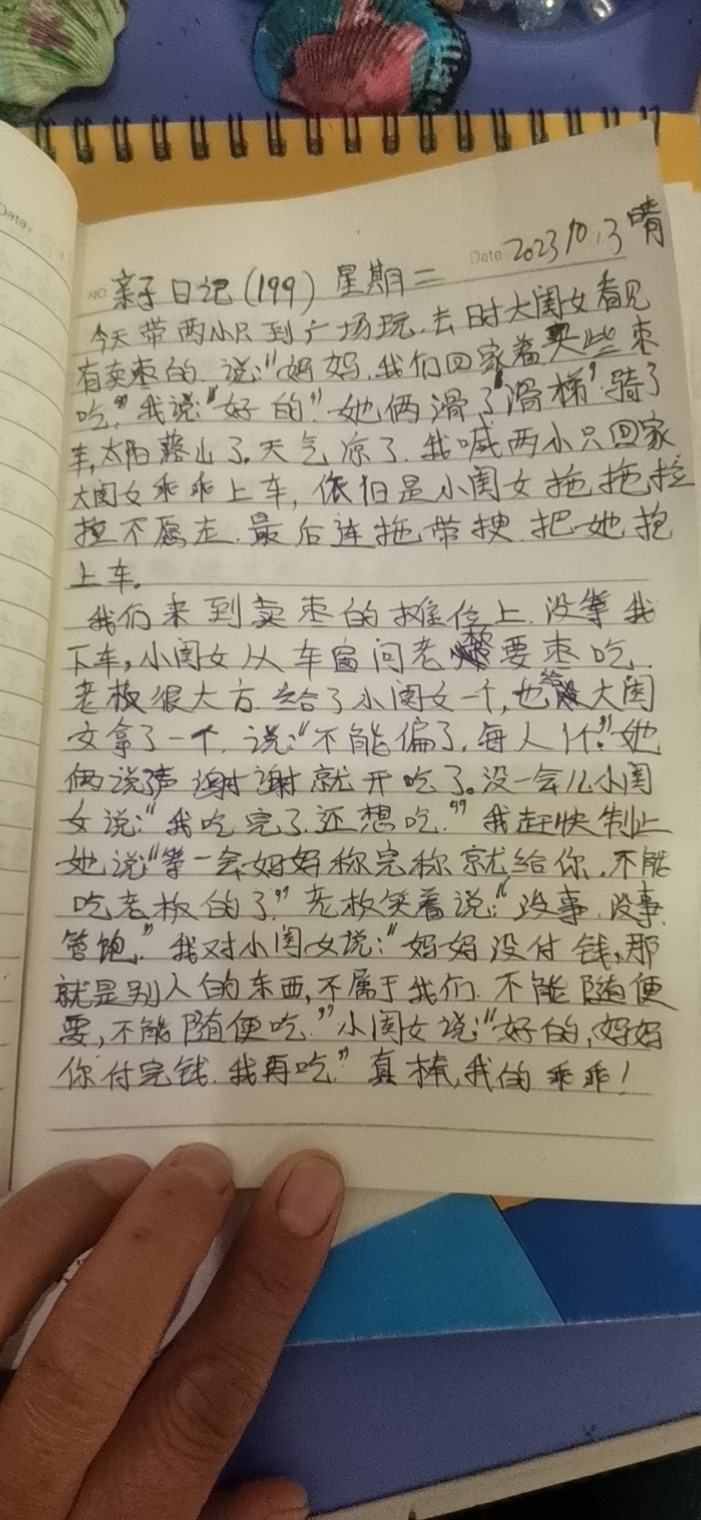 Date:
Date: 2023 10.3 晴
NO. 亲子日记(199) 星期二
今天带两小只到广场玩.去时大闺女看见
有卖枣的.说:"妈妈.我们回家着买些枣
吃."我说:"好的."她俩滑了"滑梯".骑了
车,太阳落山了.天气凉了.我喊两小只回家
大闺女乖乖上车,依旧是小闺女拖拖拉
拉不愿走.最后连拖带拽.把她抱
上车.
我们来到卖枣的摊位上.没等我
下车,小闺女从车窗问老板要枣吃.
老板很大方.给了小闺女一个,也给大闺
女拿了一个.说:"不能偏了.每人1个."她
俩说了声谢谢就开吃了.没一会儿小闺
女说:"我吃完了.还想吃."我赶快制止
她说:"等一会妈妈称完称就给你.不能
吃老板的了."老板笑着说:"没事.没事.
管饱."我对小闺女说:"妈妈没付钱,那
就是别人的东西,不属于我们.不能随便
要,不能随便吃."小闺女说:"好的,妈妈
你付完钱.我再吃."真棒,我的乖乖!